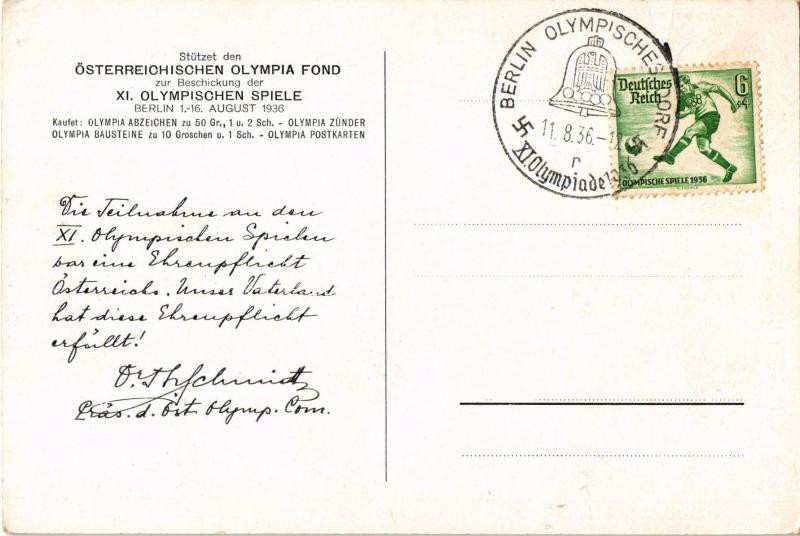 Stützet den
ÖSTERREICHISCHEN OLYMPIA FOND
zur Beschickung der
XI. OLYMPISCHEN SPIELE
BERLIN 1.-16. AUGUST 1936
Kaufet: OLYMPIA ABZEICHEN zu 50 Gr., 1 u. 2 Sch. - OLYMPIA ZÜNDER
OLYMPIA BAUSTEINE zu 10 Groschen u. 1 Sch. - OLYMPIA POSTKARTEN
Die Teilnahme an den
XI. Olympischen Spielen
war eine Ehrenpflicht
Österreichs. Unser Vaterland
hat diese Ehrenpflicht
erfüllt!
Dr. Th Schmidt
Präs. d. Öst. Olymp. Com.
BERLIN OLYMPISCHES DORF
11.8.36.-12
r
XI. Olympiade 1936
Deutsches
Reich
6+4
OLYMPISCHE SPIELE 1936